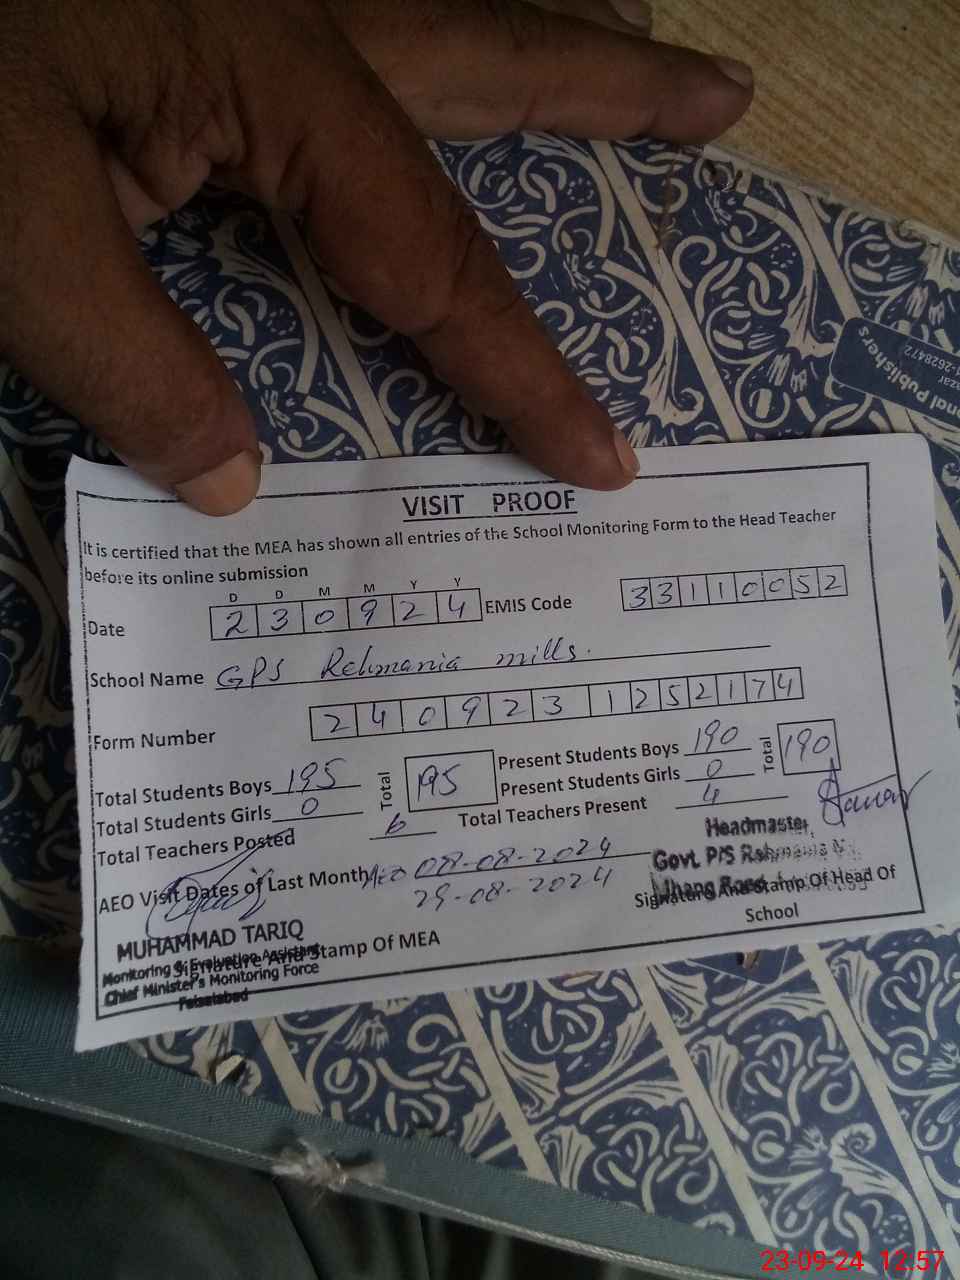 onal Publishers
azar
4-2628472
VISIT PROOF
It is certified that the MEA has shown all entries of the School Monitoring Form to the Head Teacher
before its online submission
D D M M Y Y
Date 2 3 0 9 2 4 EMIS Code 3 3 1 1 0 0 5 2
School Name GPS Rehmania mills.
Form Number 2 4 0 9 2 3 1 2 5 2 1 7 4
Total Students Boys 195 Total 195 Present Students Boys 190 Total 190
Total Students Girls 0 Present Students Girls 0
Total Teachers Posted 6 Total Teachers Present 4
AEO Visit Dates of Last Month AEO 08-08-2024
29-08-2024
Headmaster,
Govt. P/S Rehmania
Jhang Road
Signature And Stamp Of Head Of
School
MUHAMMAD TARIQ
Signature And Stamp Of MEA
Monitoring & Evaluation Assistant
Chief Minister's Monitoring Force
Faisalabad
23-09-24 12:57